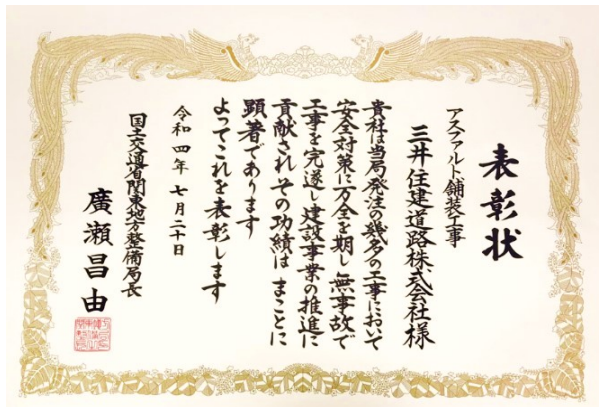 表彰状
アスファルト舗装工事
三井住建道路株式会社様
貴社は当局発注の幾多の工事において
安全対策に万全を期し無事故で
工事を完遂し建設事業の推進に
貢献されその功績は まことに
顕著であります
よってこれを表彰します
令和四年七月二十日
国土交通省関東地方整備局長
廣瀬昌由